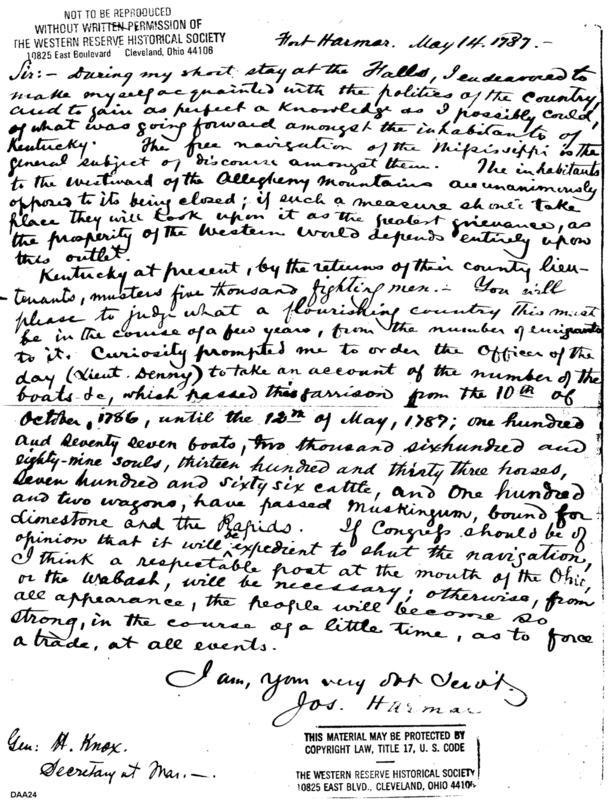 NOT TO BE REPRODUCED
WITHOUT WRITTEN PERMISSION OF
THE WESTERN RESERVE HISTORICAL SOCIETY
10825 East Boulevard Cleveland, Ohio 44106
Fort Harmar. May 14. 1787.-
Sir:- During my short stay at the Falls, I endeavored to
make myself acquainted with the politics of the country,
and to gain as perfect a knowledge as I possibly could,
of what was going forward amongst the inhabitants of
Kentucky. The free navigation of the Missippi is the
general subject of discourse amongst them. The inhabitants
to the westward of the Allegheny Mountains are unanimously
opposed to its being closed; if such a measure should take
place they will look upon it as the greatest grievance, as
the prosperity of the Western World depends entirely upon
this outlet.
Kentucky at present, by the returns of their county lieu-
tenants, musters five thousand fighting men.- You will
please to judge what a flourishing country this must
be in the course of a few years, from the number of emigrants
to it. Curiosity prompted me to order the Officer of the
day (Lieut. Denny) to take an account of the number of the
boats &c, which passed this garrison from the 10th of
October, 1786, until the 12th of May, 1787; one hundred
and seventy seven boats, two thousand six hundred and
eighty-nine souls, thirteen hundred and thirty three horses,
seven hundred and sixty six cattle, and one hundred
and two wagons, have passed Muskingum, bound for
Limestone and the Rapids. If Congress should be of
opinion that it will be expedient to shut the navigation,
I think a respectable post at the mouth of the Ohio,
or the Wabash, will be necessary; otherwise, from
all appearance, the people will become so
strong, in the course of a little time, as to force
a trade, at all events.
I am, your very obt Servt.
Jos. Harmar
Gen: H. Knox.
Secretary at War.-
THIS MATERIAL MAY BE PROTECTED BY
COPYRIGHT LAW, TITLE 17, U. S. CODE
THE WESTERN RESERVE HISTORICAL SOCIETY
10825 EAST BLVD., CLEVELAND, OHIO 44106
DAA24